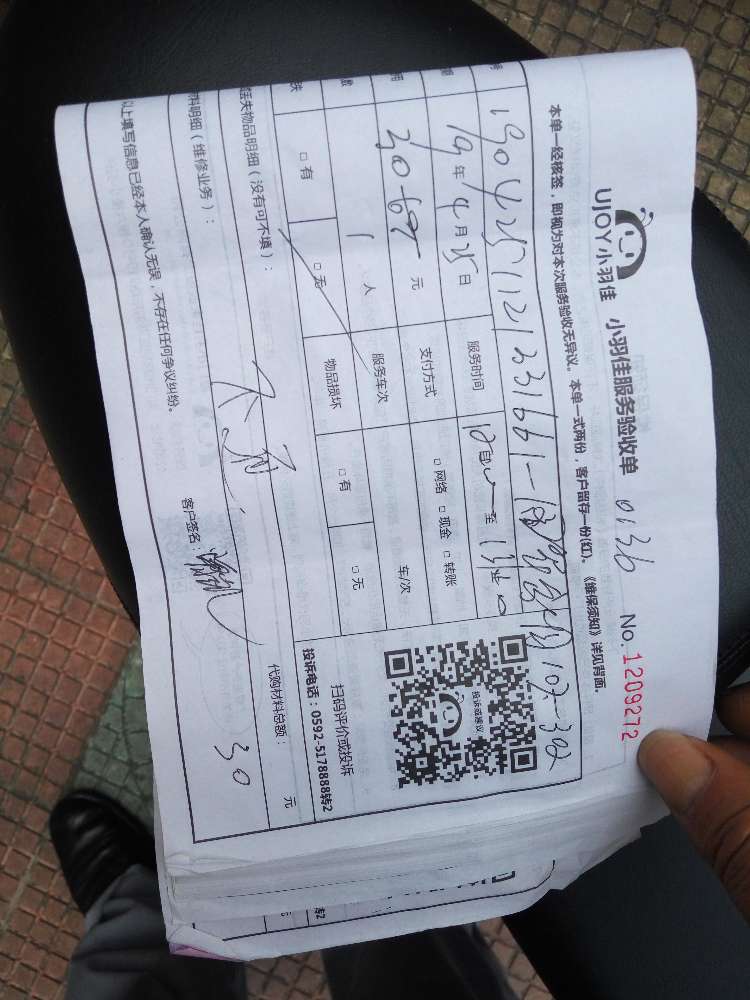 UJOY小羽佳 小羽佳服务验收单 0136 No. 1209272
本单一经核签，即视为对本次服务验收无异议。本单一式两份，客户留存一份(红)。《维保须知》详见背面。
号 107-302
期 19年4月25日 服务时间 至
元 支付方式 □ 网络 □ 现金 □ 转账
数 1 人 服务车次 车/次
□ 有 □ 无 物品损坏 □ 有 □ 无
投诉或建议
扫码评价或投诉
投诉电话：0592-5178888转2
丢失物品明细（没有可不填）：
料明细（维修业务）： 代购材料总额： 30 元
以上填写信息已经本人确认无误，不存在任何争议纠纷。 客户签名：
转2
元